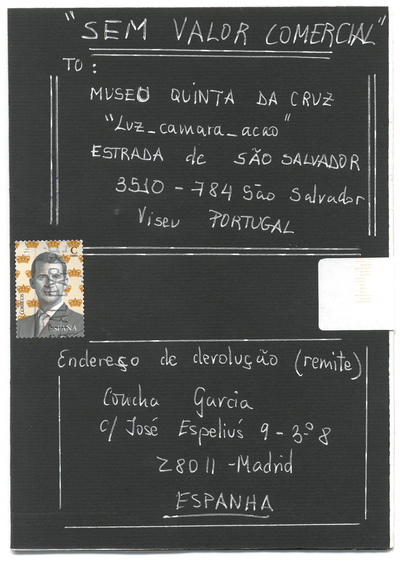 "SEM VALOR COMERCIAL"
TO:
MUSEO QUINTA DA CRUZ
"Luz_camara_acao"
ESTRADA de SÃO SALVADOR
3510 - 784 São Salvador
Viseu PORTUGAL
CORREOS
ESPAÑA
Endereço de devolução (remite)
Concha Garcia
C/ José Espeliús 9 - 3º 8
28011 - Madrid
ESPANHA